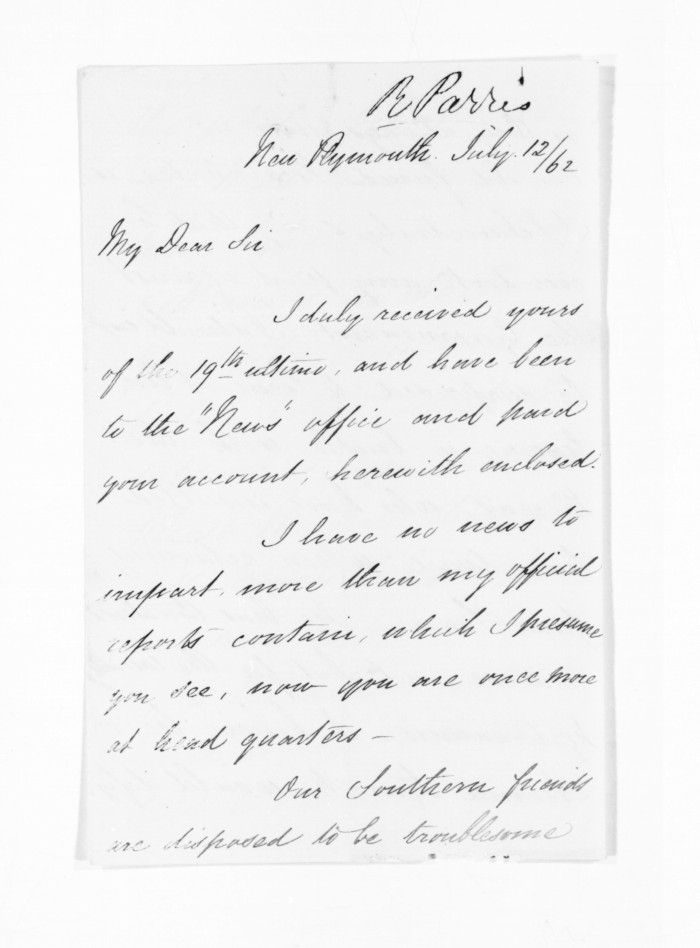 R Parris
New Plymouth. July. 12/62
My Dear Sir
I duly received yours
of the 19th ultimo, and have been
to the "News" office and paid
your account, herewith enclosed.
I have no news to
impart, more than my official
reports contain, which I presume
you see, now you are once more
at head quarters —
Our Southern friends
are disposed to be troublesome